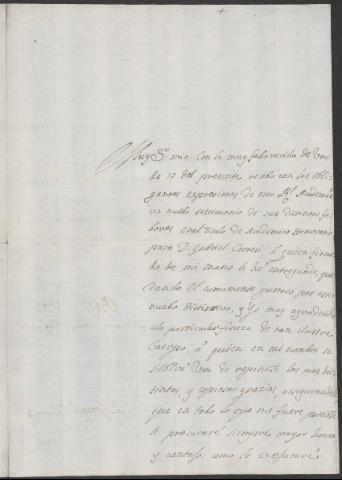 +
Muy S.r mio. Con la muy faborecida de Vm
de 17 del presente, recibo con los obli-
gantes expresiones de essa R.l Academia
un nuebo testimonio de sus distintos fa-
bores en el Titulo de Academico Honorario
para D. Gabriel Cortesi, á quien firma-
do de mi mano le he entreguado, que-
dando el sumamente gustoso por este
nuebo distintivo, y Yo muy agradecido
a la particular fineza de tan ilustre
Cuerpo, a quien en mi nombre se
Vm de repetirle las mas dis-
tintas, y copiosas grazias, asegurandole
que en todo lo que me fuere possible
le procuraré siempre mayor honra,
y ventaja, como lo